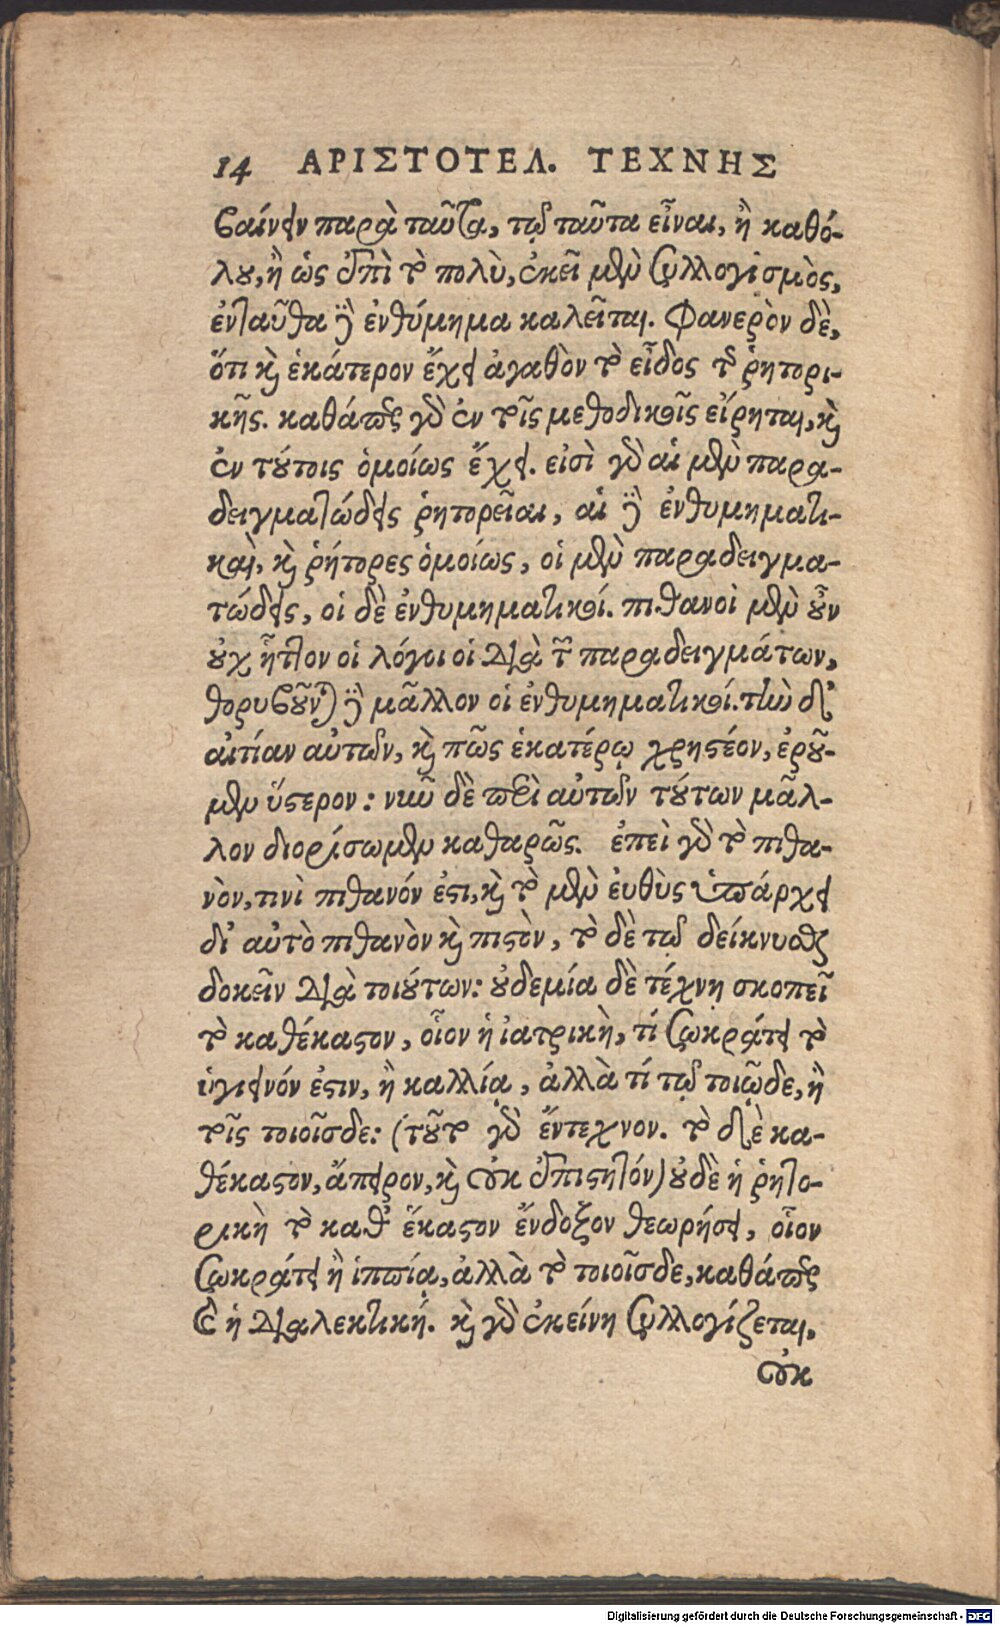 14 ΑΡΙΣΤΟΤΕΛ. ΤΕΧΝΗΣ
βαίνειν παρὰ ταῦτα, τῷ ταῦτα εἶναι, ἢ καθό-
λου, ἢ ὡς ἐπὶ τὸ πολὺ, ἐκεῖ μὲν συλλογισμὸς,
ἐνταῦθα δὲ ἐνθύμημα καλεῖται. Φανερὸν δὲ,
ὅτι καὶ ἑκάτερον ἔχει ἀγαθὸν τὸ εἶδος τῆς ῥητορι-
κῆς. καθάπερ γὰρ ἐν τοῖς μεθοδικοῖς εἴρηται, καὶ
ἐν τούτοις ὁμοίως ἔχει. εἰσὶ γὰρ αἱ μὲν παρα-
δειγματώδεις ῥητορεῖαι, αἱ δὲ ἐνθυμηματι-
καὶ, καὶ ῥήτορες ὁμοίως, οἱ μὲν παραδειγμα-
τώδεις, οἱ δὲ ἐνθυμηματικοί. πιθανοὶ μὲν οὖν
οὐχ ἧττον οἱ λόγοι οἱ διὰ τῶν παραδειγμάτων,
θορυβοῦνται δὲ μᾶλλον οἱ ἐνθυμηματικοί. τὴν δ'
αἰτίαν αὐτῶν, καὶ πῶς ἑκατέρῳ χρηστέον, ἐροῦ-
μεν ὕστερον: νῦν δὲ περὶ αὐτῶν τούτων μᾶλ-
λον διορίσωμεν καθαρῶς. ἐπεὶ γὰρ τὸ πιθα-
νὸν, τινὶ πιθανόν ἐστι, καὶ τὸ μὲν εὐθὺς ὑπάρχει
δι' αὐτὸ πιθανὸν καὶ πιστὸν, τὸ δὲ τῷ δείκνυσθαι
δοκεῖν διὰ τοιούτων: οὐδεμία δὲ τέχνη σκοπεῖ
τὸ καθέκαστον, οἷον ἡ ἰατρικὴ, τί Σωκράτει τὸ
ὑγιεινόν ἐστιν, ἢ καλλίᾳ, ἀλλὰ τί τῷ τοιῷδε, ἢ
τοῖς τοιοῖσδε: (τοῦτο γὰρ ἔντεχνον. τὸ δὲ κα-
θέκαστον, ἄπειρον, καὶ οὐκ ἐπιστητόν) οὐδὲ ἡ ῥητο-
ρικὴ τὸ καθ' ἕκαστον ἔνδοξον θεωρήσει, οἷον
Σωκράτει ἢ ἱππίᾳ, ἀλλὰ τὸ τοιοῖσδε, καθάπερ
καὶ ἡ διαλεκτική. καὶ γὰρ ἐκείνη συλλογίζεται,
οὐκ
Digitalisierung gefördert durch die Deutsche Forschungsgemeinschaft - DFG